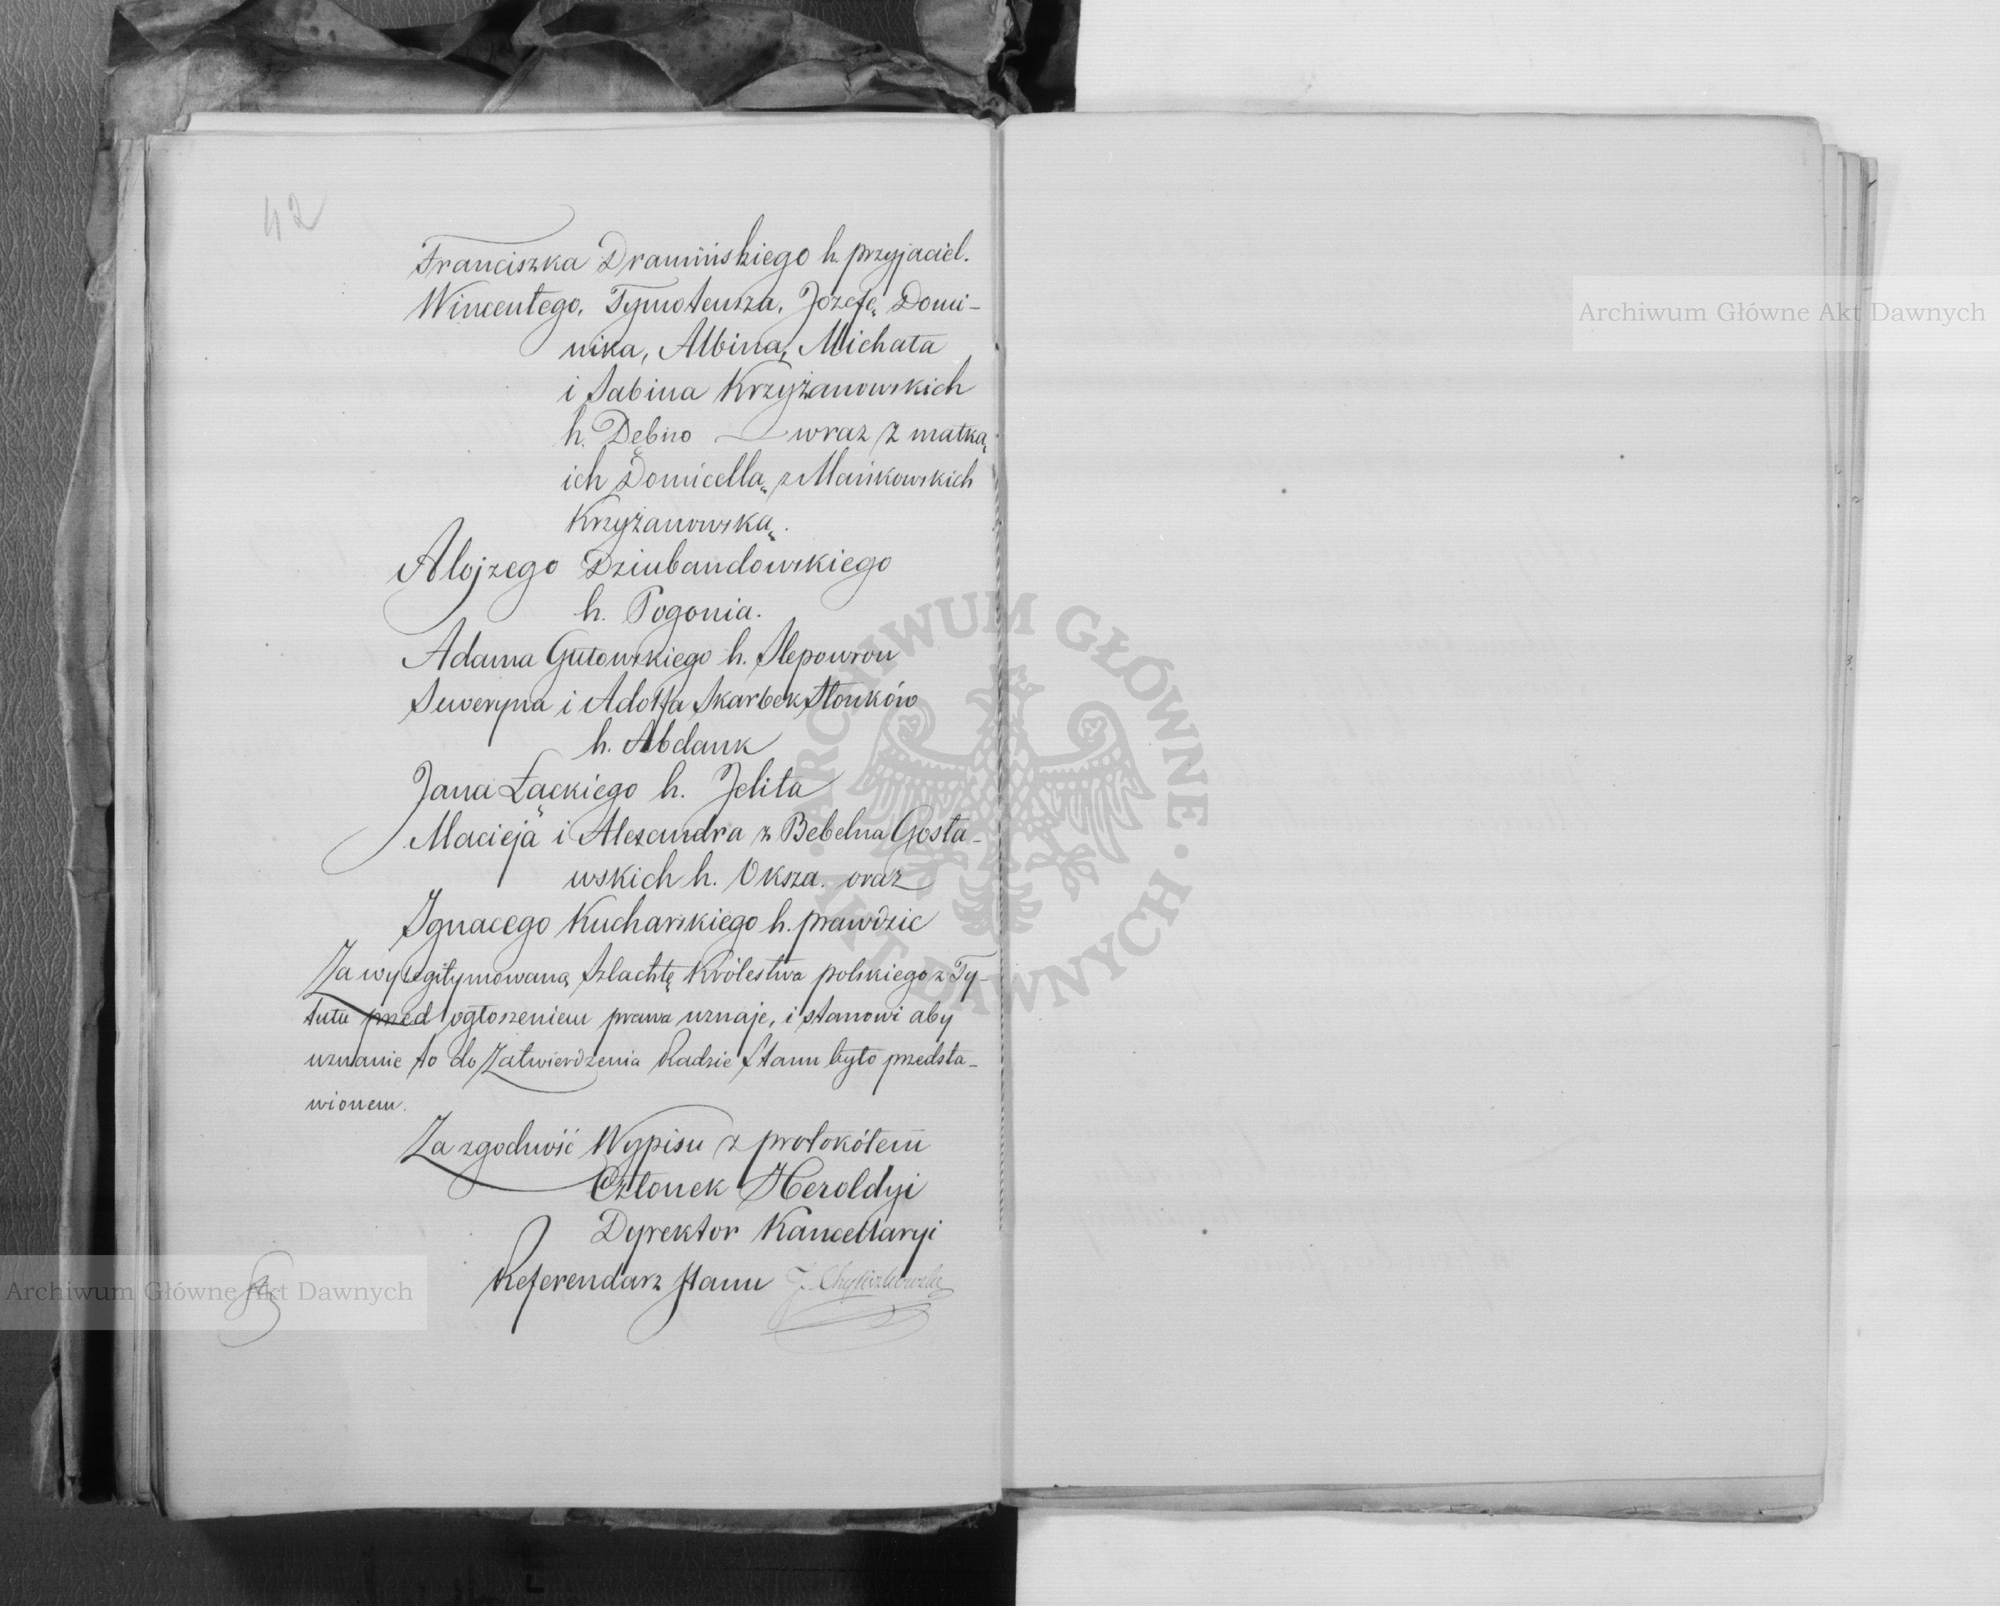 42
Franciszka Dramińskiego h. przyjaciel.
Wincentego, Tymoteusza, Józefę, Domi-
nika, Albina, Michała
i Sabina Krzyżanowskich
h. Dębno — wraz z matką
ich Domicellą z Mańkowskich
Krzyżanowską.
Alojzego Dziubandowskiego
h. Pogonia.
Adama Gutowskiego h. Slepowron
Seweryna i Adolfa Skarbek Słonków
h. Abdank
Jana Łąckiego h. Jelita
Macieja i Alexandra z Bebelna Gosła-
wskich h. Oksza. oraz
Ignacego Kucharskiego h. prawdzic
Za wylegitymowaną Szlachtę Królestwa polskiego z Ty-
tułu przed ogłoszeniem prawa uznaje, i stanowi aby
uznanie to do Zatwierdzenia Radzie Stanu było przedsta-
wionem.
Za zgodność Wypisu z protokółem
Członek Heroldyi
Dyrektor Kancellaryi
Referendarz Stanu
Archiwum Główne Akt Dawnych
Archiwum Główne Akt Dawnych
ARCHIWUM GŁÓWNE · AKT DAWNYCH ·